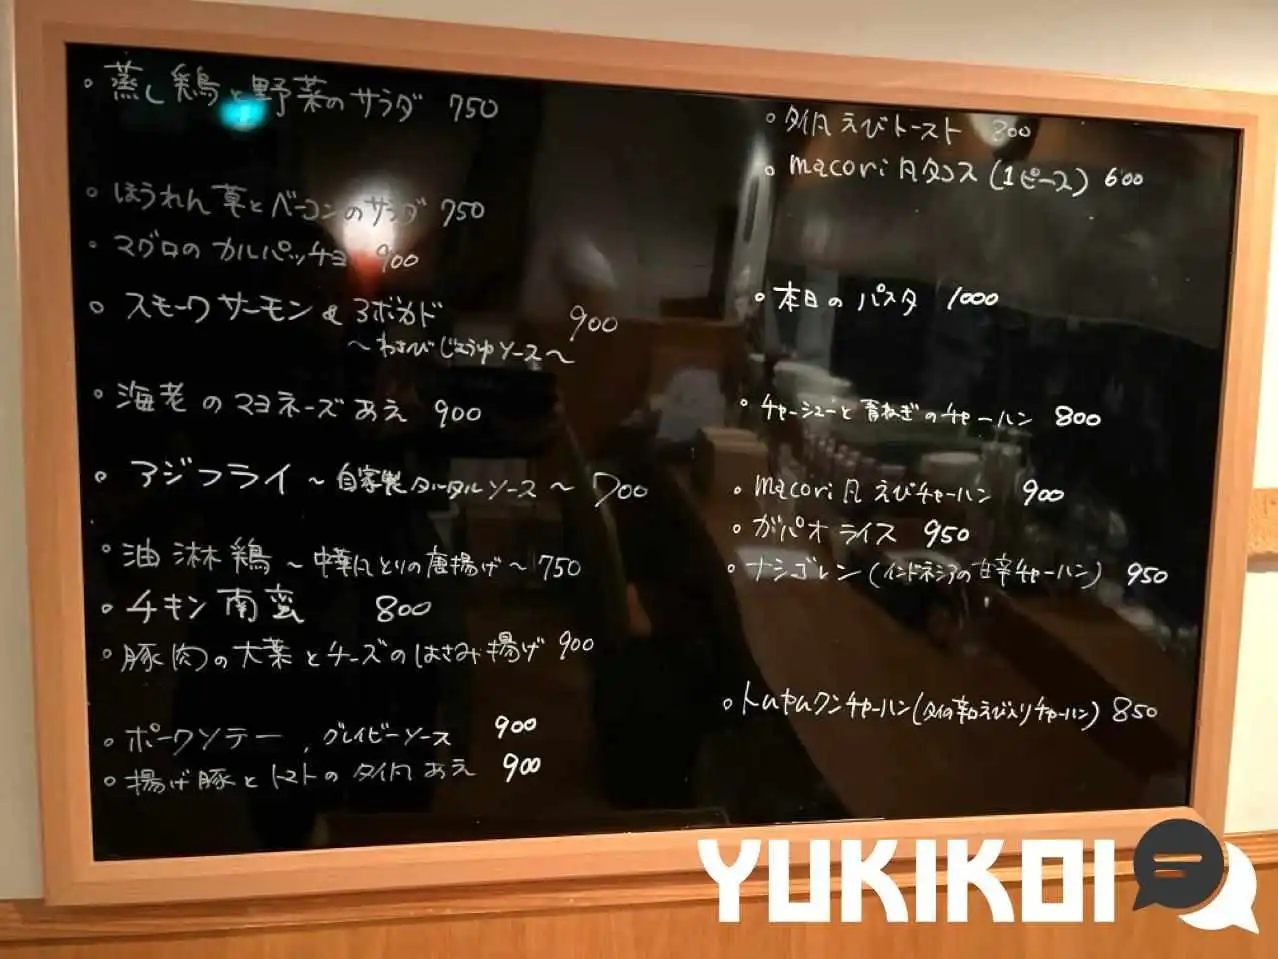 。蒸し鶏と野菜のサラダ 750
。ほうれん草とベーコンのサラダ 750
。マグロのカルパッチョ 900
。スモークサーモン & アボカド 900
～わさびじょうゆソース～
。海老のマヨネーズあえ 900
。アジフライ～自家製タルタルソース～ 700
。油淋鶏～中華風とりの唐揚げ～ 750
。チキン南蛮 800
。豚肉の大葉とチーズのはさみ揚げ 900
。ポークソテー,グレイビーソース 900
。揚げ豚とトマトのタイ風あえ 900
。タイ風えびトースト 800
。macori風タコス(1ピース) 600
。本日のパスタ 1000
。チャーシューと青ねぎのチャーハン 800
。macori風えびチャーハン 900
。ガパオライス 950
。ナシゴレン(インドネシアの甘辛チャーハン) 950
。トムヤムクンチャーハン(タイの辛口えび入りチャーハン) 850
YUKIKOI